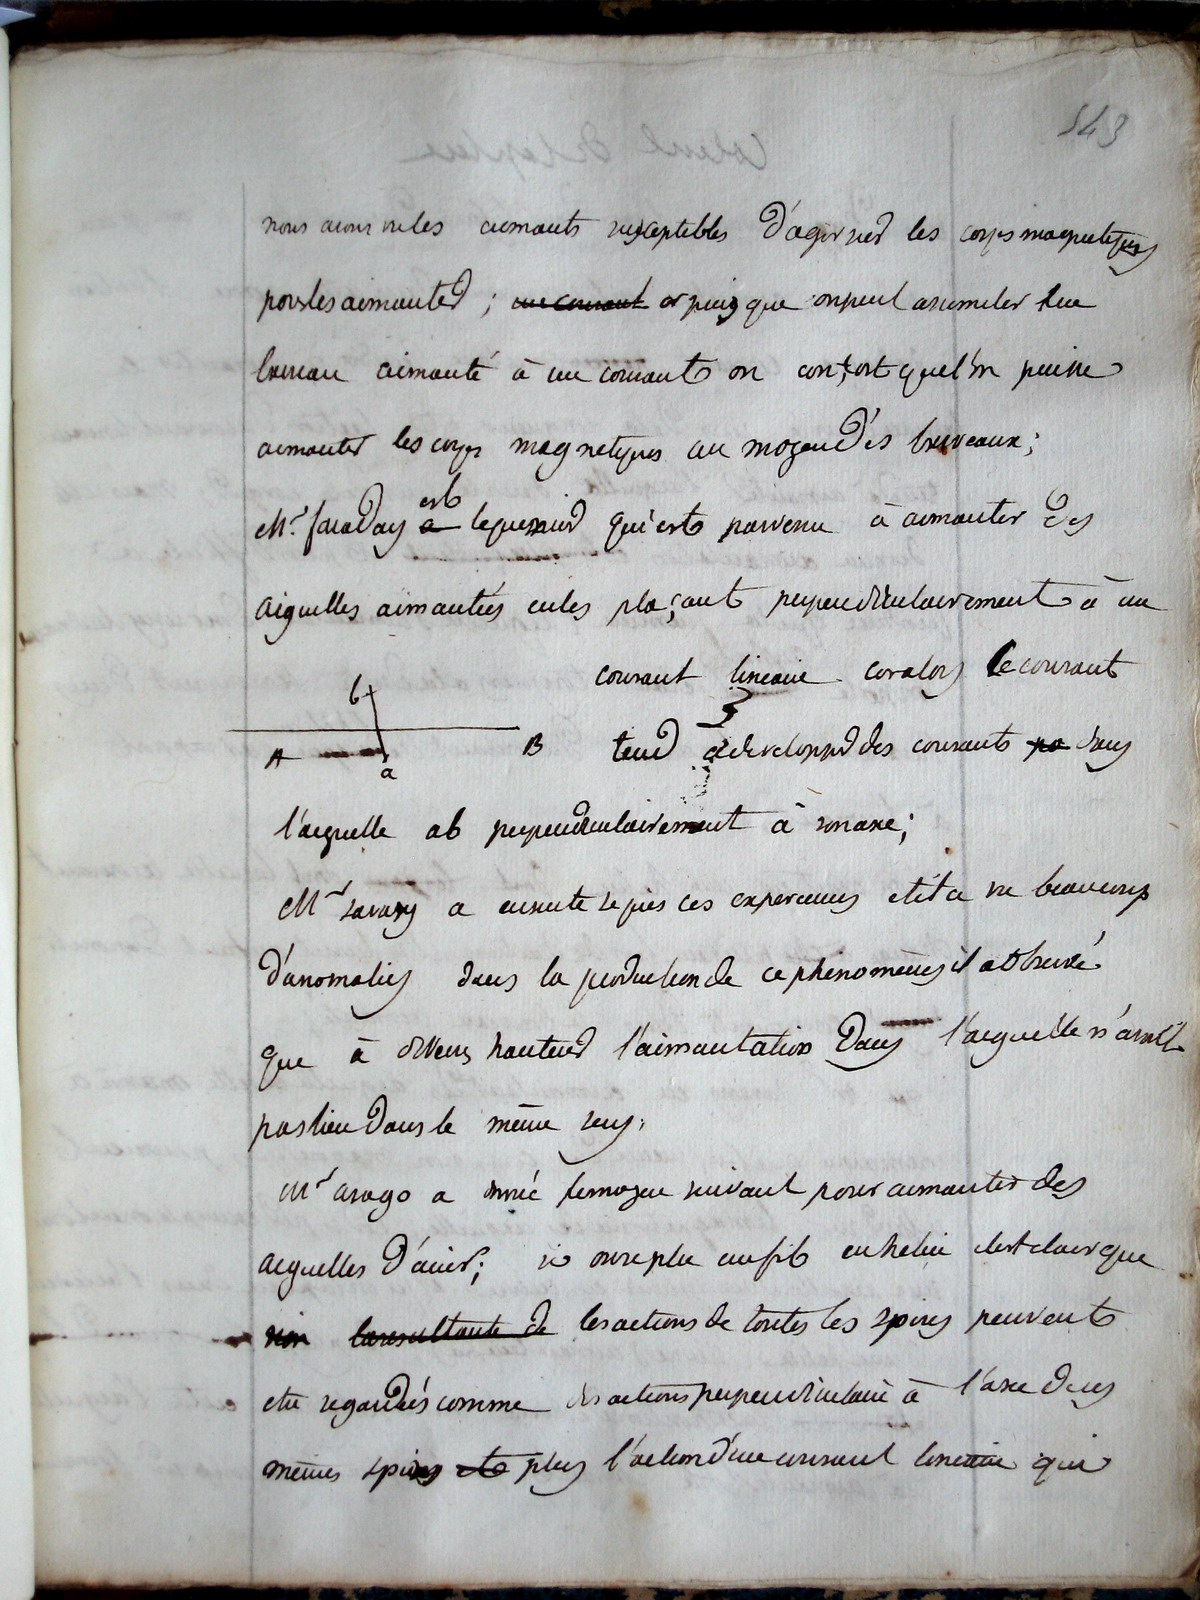 543
nous avons vu les aimants susceptibles d'agir sur les corps magnetiques
pour les aimanter; un courant or puis que on peut assimiler un
barreau aimanté à un courant on conçoit que l'on puisse
aimanter les corps magnetiques au moyen des barreaux;
est
Mr. faraday a le premier qui est parvenu à aimanter des
aiguilles aimantées en les plaçant perpendiculairement à un
courant lineaire car alors le courant
b
A B tend a developper des courants pa dans
a
l'aiguille ab perpendiculairement à son axe;
Mr savary a ensuite repris ces experiences et il a vu beaucoup
d'anomalies dans la production de ce phénomènes il a observé
que à divers hauteur l'aimantation dans l'aiguille n'avait
pas lieu dans le même sens;
Mr arago a donné le moyen suivant pour aimanter des
aiguilles d'acier; si on replie un fil en helice il est clair que
la resultante de les actions de toutes les spires peuvent
etre regardés comme des actions perpendiculaire à l'axe dues
mêmes spires et plus l'action d'un courant lineaire qui